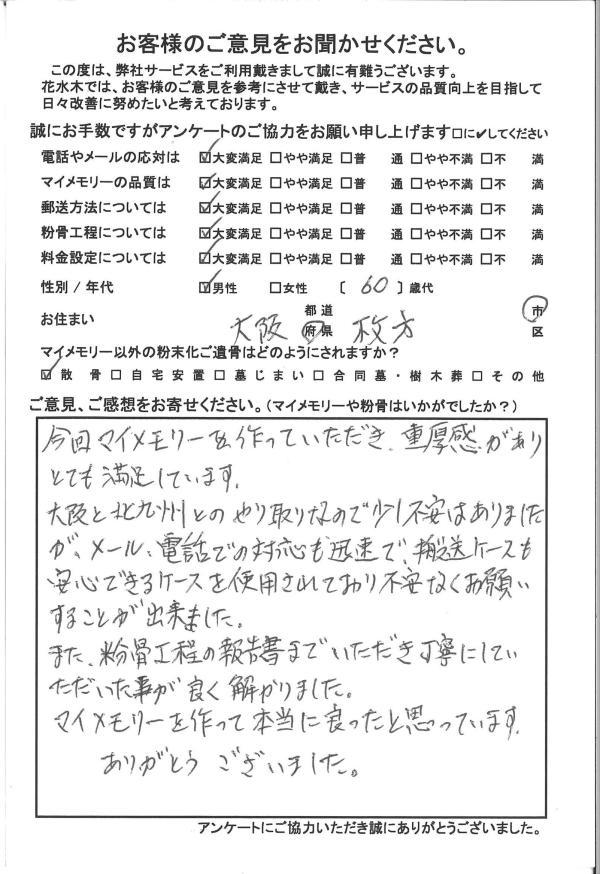 お客様のご意見をお聞かせください。
この度は、弊社サービスをご利用戴きまして誠に有難うございます。
花水木では、お客様のご意見を参考にさせて戴き、サービスの品質向上を目指して
日々改善に努めたいと考えております。
誠にお手数ですがアンケートのご協力をお願い申し上げます□に✓してください
電話やメールの応対は ☑大変満足 □やや満足 □普 通 □やや不満 □不 満
マイメモリーの品質は ☑大変満足 □やや満足 □普 通 □やや不満 □不 満
郵送方法については ☑大変満足 □やや満足 □普 通 □やや不満 □不 満
粉骨工程については ☑大変満足 □やや満足 □普 通 □やや不満 □不 満
料金設定については ☑大変満足 □やや満足 □普 通 □やや不満 □不 満
性別 / 年代 ☑男性 □女性 〔 60 〕歳代
お住まい 大阪 都道府県 枚方 市区
マイメモリー以外の粉末化ご遺骨はどのようにされますか?
☑散 骨 □自宅安置 □墓じまい □合同墓・樹木葬 □その他
ご意見、ご感想をお寄せください。(マイメモリーや粉骨はいかがでしたか?)
今回マイメモリーを作っていただき、重厚感があり
とても満足しています。
大阪と北九州とのやり取りなので少し不安はありました
が、メール、電話での対応も迅速で、搬送ケースも
安心できるケースを使用されており不安なくお願い
することが出来ました。
また、粉骨工程の報告書までいただき丁寧にしてい
ただいた事が良く解かりました。
マイメモリーを作って本当に良ったと思っています。
ありがとうございました。
アンケートにご協力いただき誠にありがとうございました。